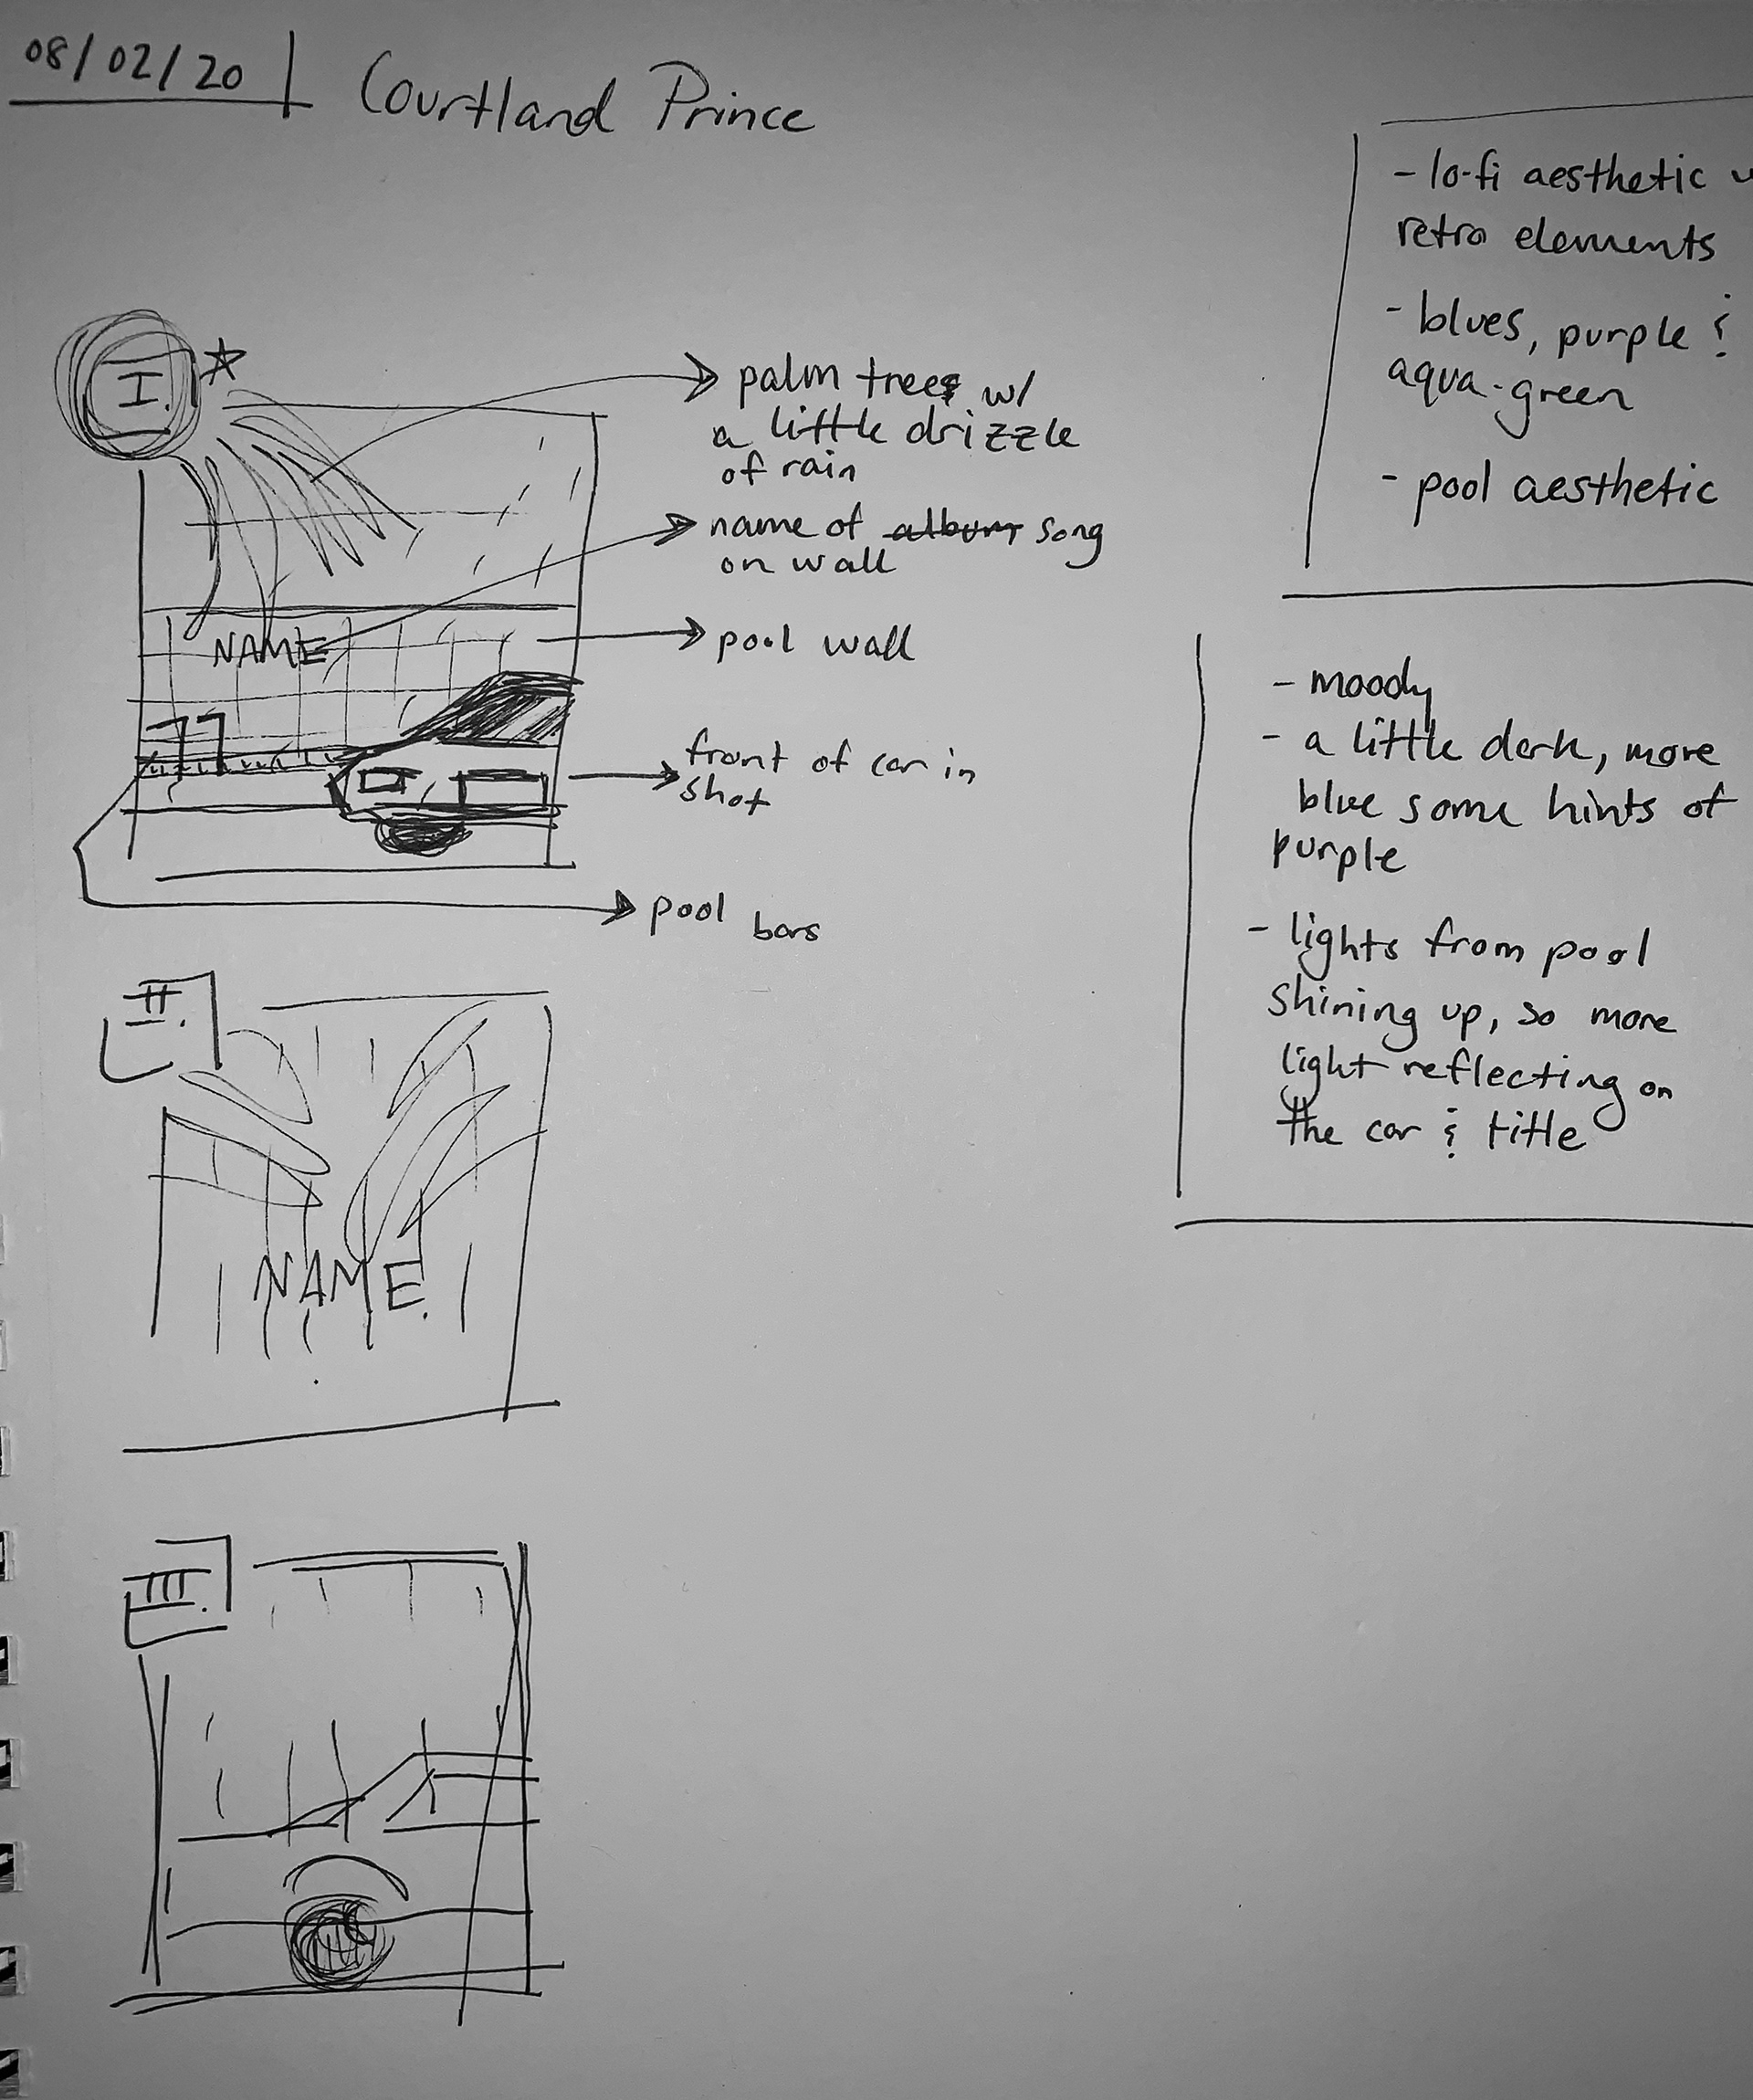 08/02/20
Courtland Prince
I.
palm trees w/
a little drizzle
of rain
name of album song
on wall
NAME
pool wall
front of car in
shot
pool bars
II.
NAME.
III.
- lo-fi aesthetic
retro elements
- blues, purple &
aqua-green
- pool aesthetic
- moody
- a little dark, more
blue some hints of
purple
- lights from pool
shining up, so more
light reflecting on
the car & title